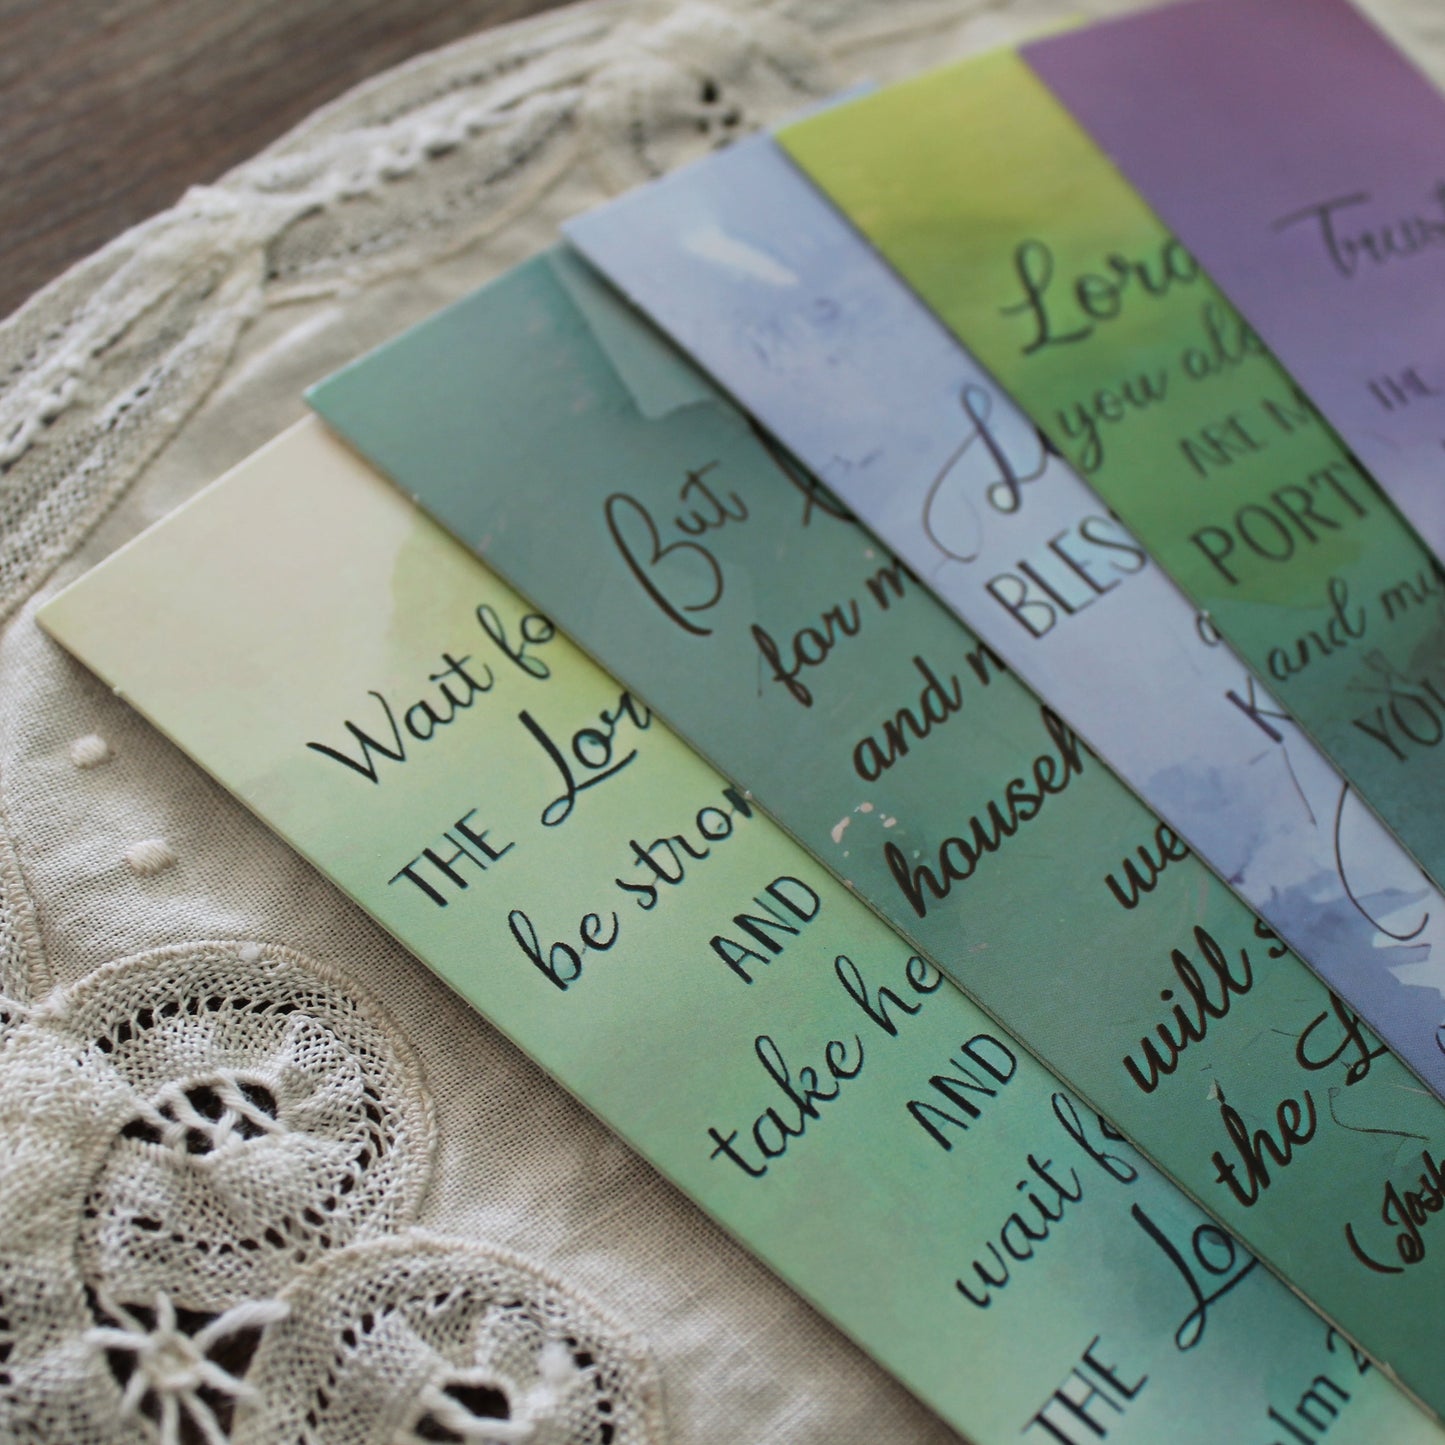 Wait fo
THE Lor
be stron
AND
take he
AND
wait f
THE Lo
alm 2
But
for m
and m
househ
we
will s
the L
(Josh
L
BLES
a
K
Lord
you als
ARE M
PORT
and mu
YOU
Trust
THE